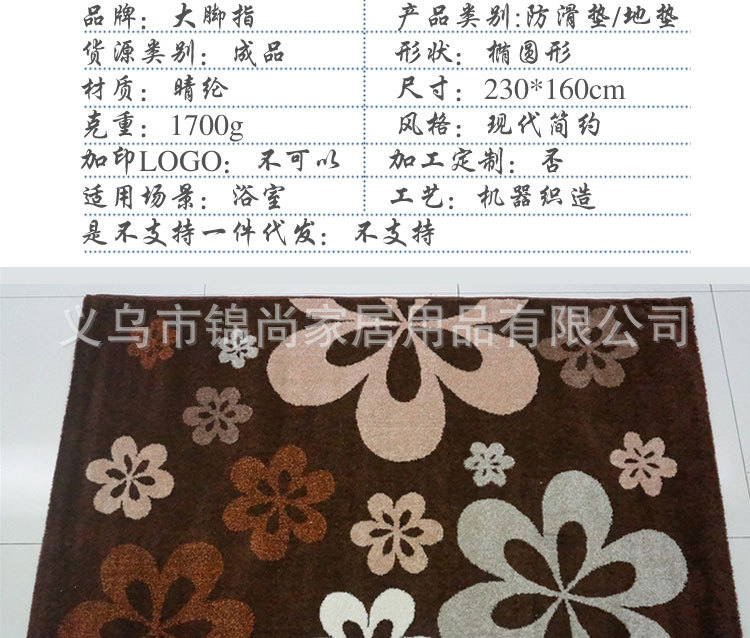 品牌：大脚指 产品类别:防滑垫/地垫
货源类别：成品 形状：椭圆形
材质：晴纶 尺寸：230*160cm
克重：1700g 风格：现代简约
加印LOGO：不可以 加工定制：否
适用场景：浴室 工艺：机器织造
是不支持一件代发：不支持
义乌市锦尚家居用品有限公司